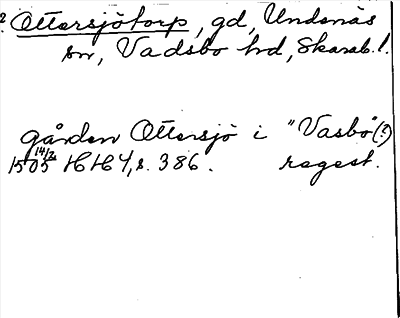 ? Ottersjötorp, gd, Undenäs
sn, Vadsbo hd, Skarab. l.
gården Ottersjö i "Vasbo"(?)
1505 14/2 HH Y, s. 386. regest.